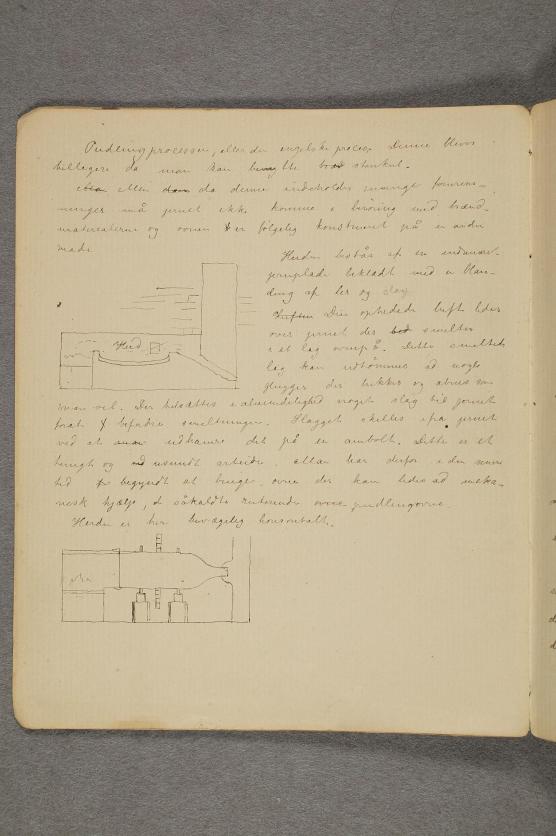 Pudlingprocessen, eller den engelske proces. Denne blev
billigere da man kan benytte stenkul.
eller da denne indeholder mange forurens-
ninger må jernet ikke komme i berøring med brænd-
materialerne og ovnen er følgelig konstrueret på en anden
måde.
Herden består af en
jernplade beklædt med en blan-
ding af ler og slag
Den ophedede luft ledes
over jernet der smeltes
et lag ovenpå. Dette smeltede
lag kan udtømmes ad nogle
glugger der lukkes og åbnes som
ovnen vel. Der tilsættes almindelighed noget slag til jernet
for at befordre smeltningen. Slagget skilles fra jernet
ved at udhamre det på en ambolt. Dette er et
tungt og usundt arbeide. Man har derfor i den senere
tid begyndt at bruge ovne der kan ledes ad meka-
nisk hjælp, såkaldte roterende pudlingovne.
Herden er her bevægelig horisontalt.
Herd